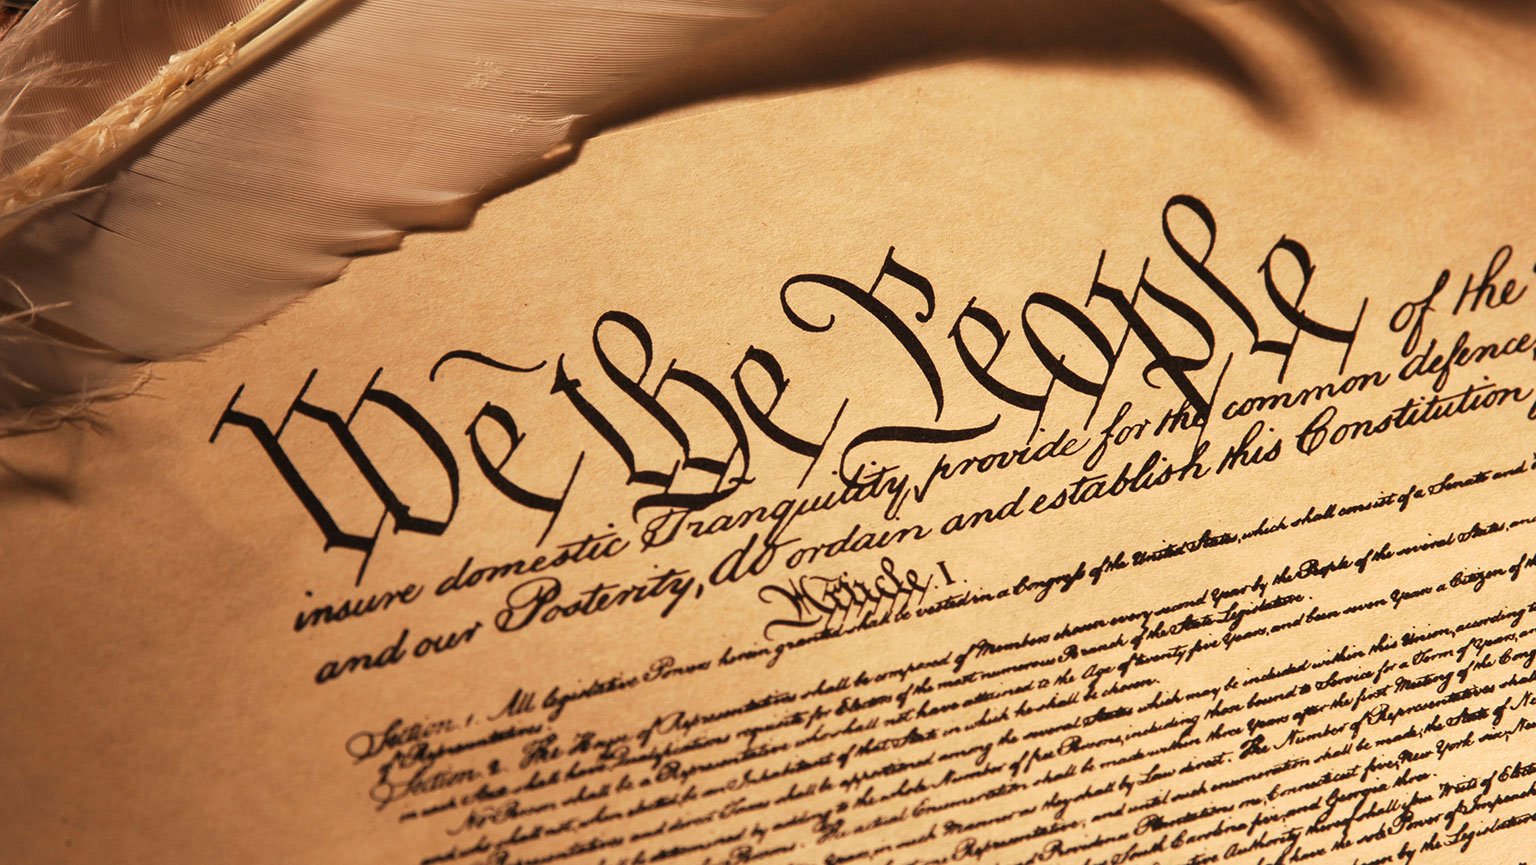 We the People of the
insure domestic Tranquility, provide for the common defence,
and our Posterity, do ordain and establish this Constitution
Article. I.
Section. 1. All legislative Powers herein granted shall be vested in a Congress of the United States, which shall consist of a Senate and
of Representatives.
Section. 2. The House of Representatives shall be composed of Members chosen every second Year by the People of the several States, and
in each State shall have Qualifications requisite for Electors of the most numerous Branch of the State Legislature.
No Person shall be a Representative who shall not have attained to the Age of twenty five Years, and been seven Years a Citizen of the
and who shall not, when elected, be an Inhabitant of that State in which he shall be chosen.
Representatives and direct Taxes shall be apportioned among the several States which may be included within this Union, according to
shall be determined by adding to the whole Number of free Persons, including those bound to Service for a Term of Years, and
Persons. The actual Enumeration shall be made within three Years after the first Meeting of the Cong
Years, in such Manner as they shall by Law direct. The Number of Representatives shall
one Representative; and until such enumeration shall be made, the State of Ne
and Providence Plantations one, Connecticut five, New York six, New
South Carolina five, and Georgia three.
Executive Authority thereof shall issue Writs of Elect
have the sole Power of Impeach
by the Legislat